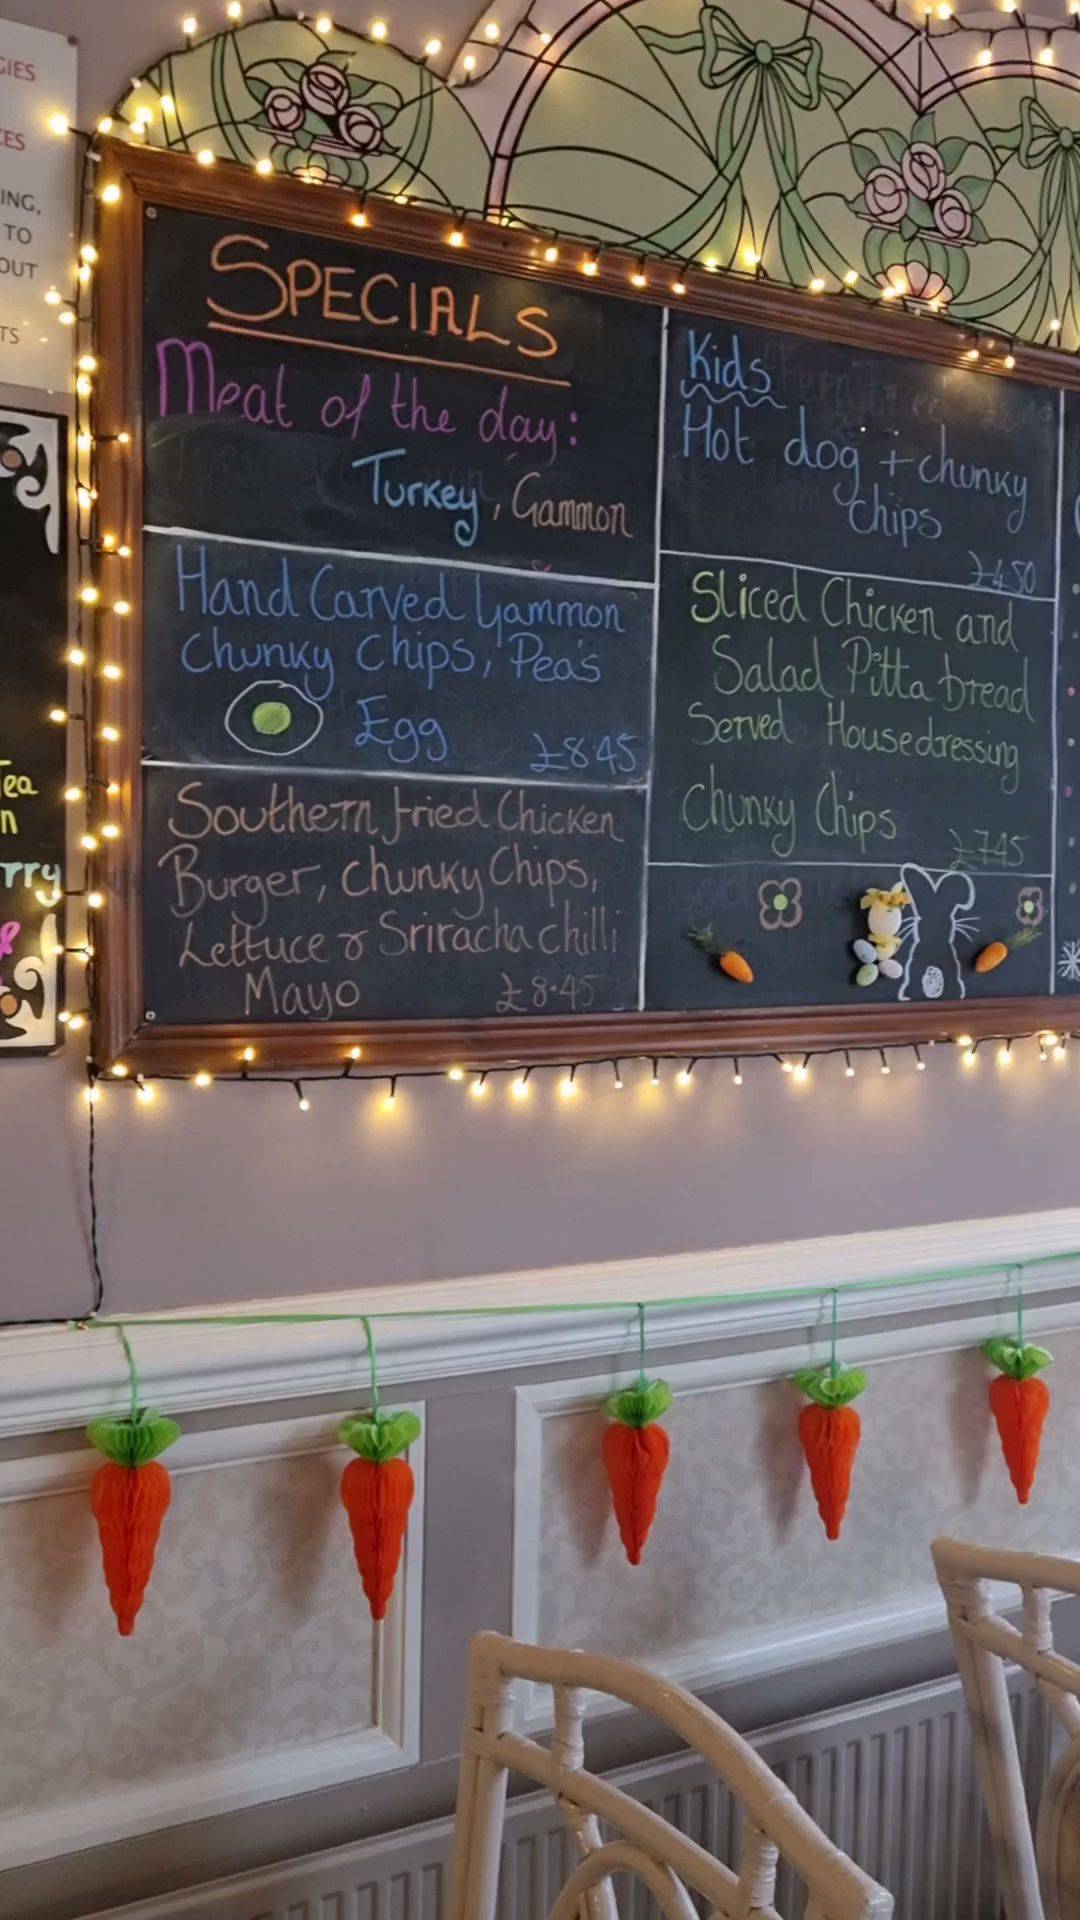 GIES
CES
ING,
TO
OUT
TS
Tea
n
rry
&
SPECIALS
Meat of the day:
Turkey, Gammon
Hand Carved Gammon
Chunky Chips, Pea's
Egg £8.45
Southern fried Chicken
Burger, Chunky Chips,
Lettuce & Sriracha chilli
Mayo £8.45
Kids
Hot dog + chunky
chips
£4.50
Sliced Chicken and
Salad Pitta bread
Served House dressing
Chunky Chips £7.45